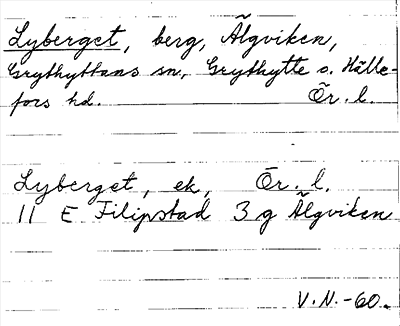 Lyberget, berg, Älgviken,
Grythyttans sn, Grythytte o. Hälle-
fors hd. Ör. l.
Lyberget, ek, Ör. l.
11 E Filipstad 3 g Älgviken
V.N.-60.